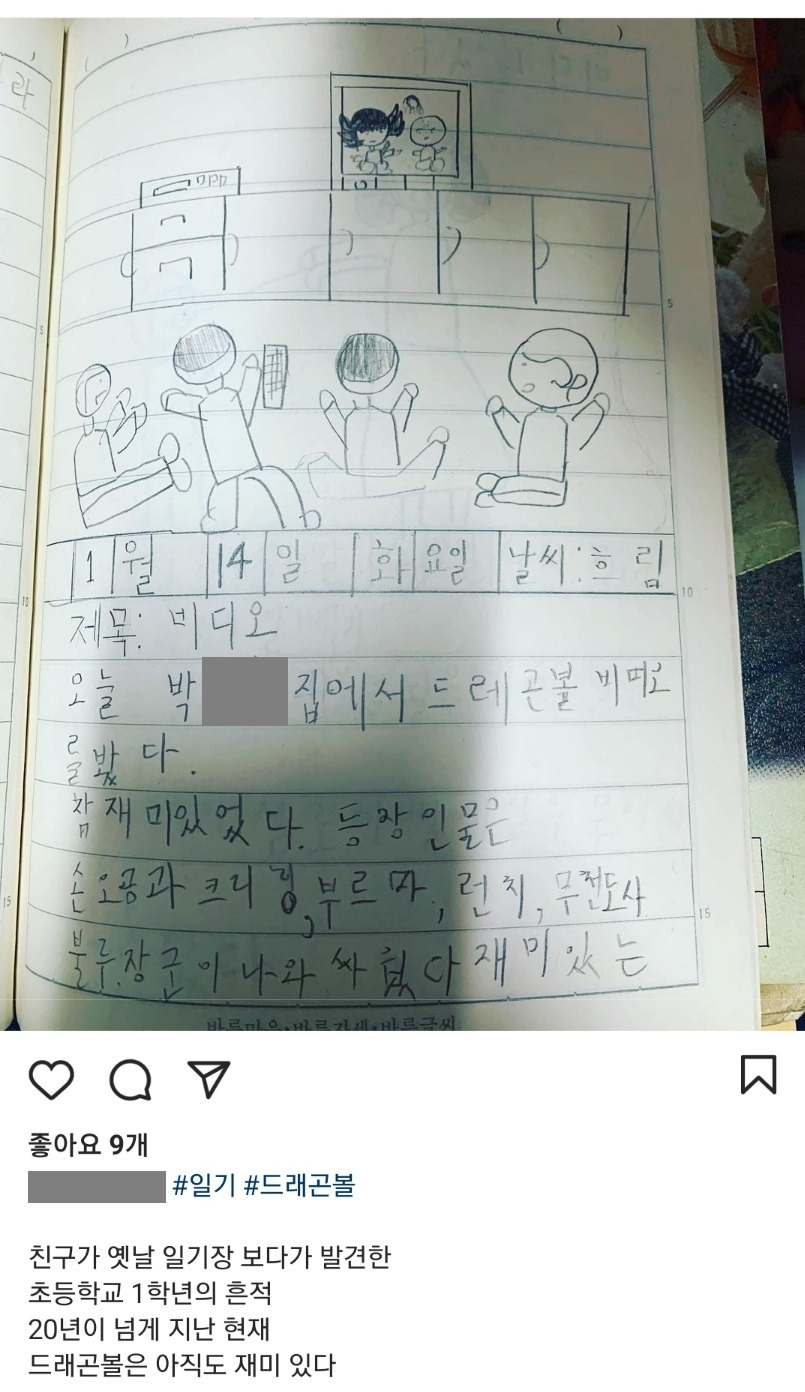 1월 14일 화요일 날씨:흐림
제목: 비디오
오늘 박 집에서 드레곤볼 비디오
를 봤다.
참 재미있었다. 등장인물은
손오공과 크리링, 부르마, 런치, 무천도사
블루.장군이 나와 싸웠다 재미있는
바른마음·바른자세·바른글씨
좋아요 9개
#일기 #드래곤볼
친구가 옛날 일기장 보다가 발견한
초등학교 1학년의 흔적
20년이 넘게 지난 현재
드래곤볼은 아직도 재미 있다